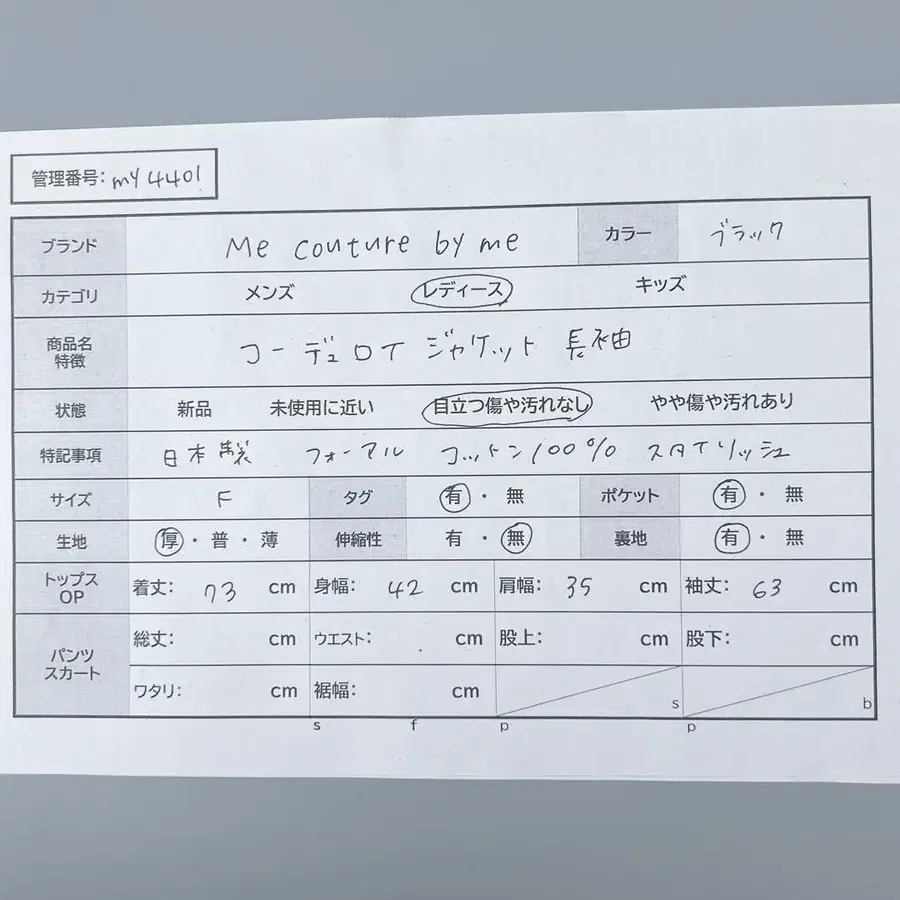 管理番号: my 4401
ブランド Me couture by me カラー ブラック
カテゴリ メンズ レディース キッズ
商品名 特徴 コーデュロイ ジャケット 長袖
状態 新品 未使用に近い 目立つ傷や汚れなし やや傷や汚れあり
特記事項 日本製 フォーマル コットン100% スタイリッシュ
サイズ F タグ 有・無 ポケット 有・無
生地 厚・普・薄 伸縮性 有・無 裏地 有・無
トップス OP 着丈: 73 cm 身幅: 42 cm 肩幅: 35 cm 袖丈: 63 cm
パンツ スカート 総丈: cm ウエスト: cm 股上: cm 股下: cm
ワタリ: cm 裾幅: cm s b
s f p p